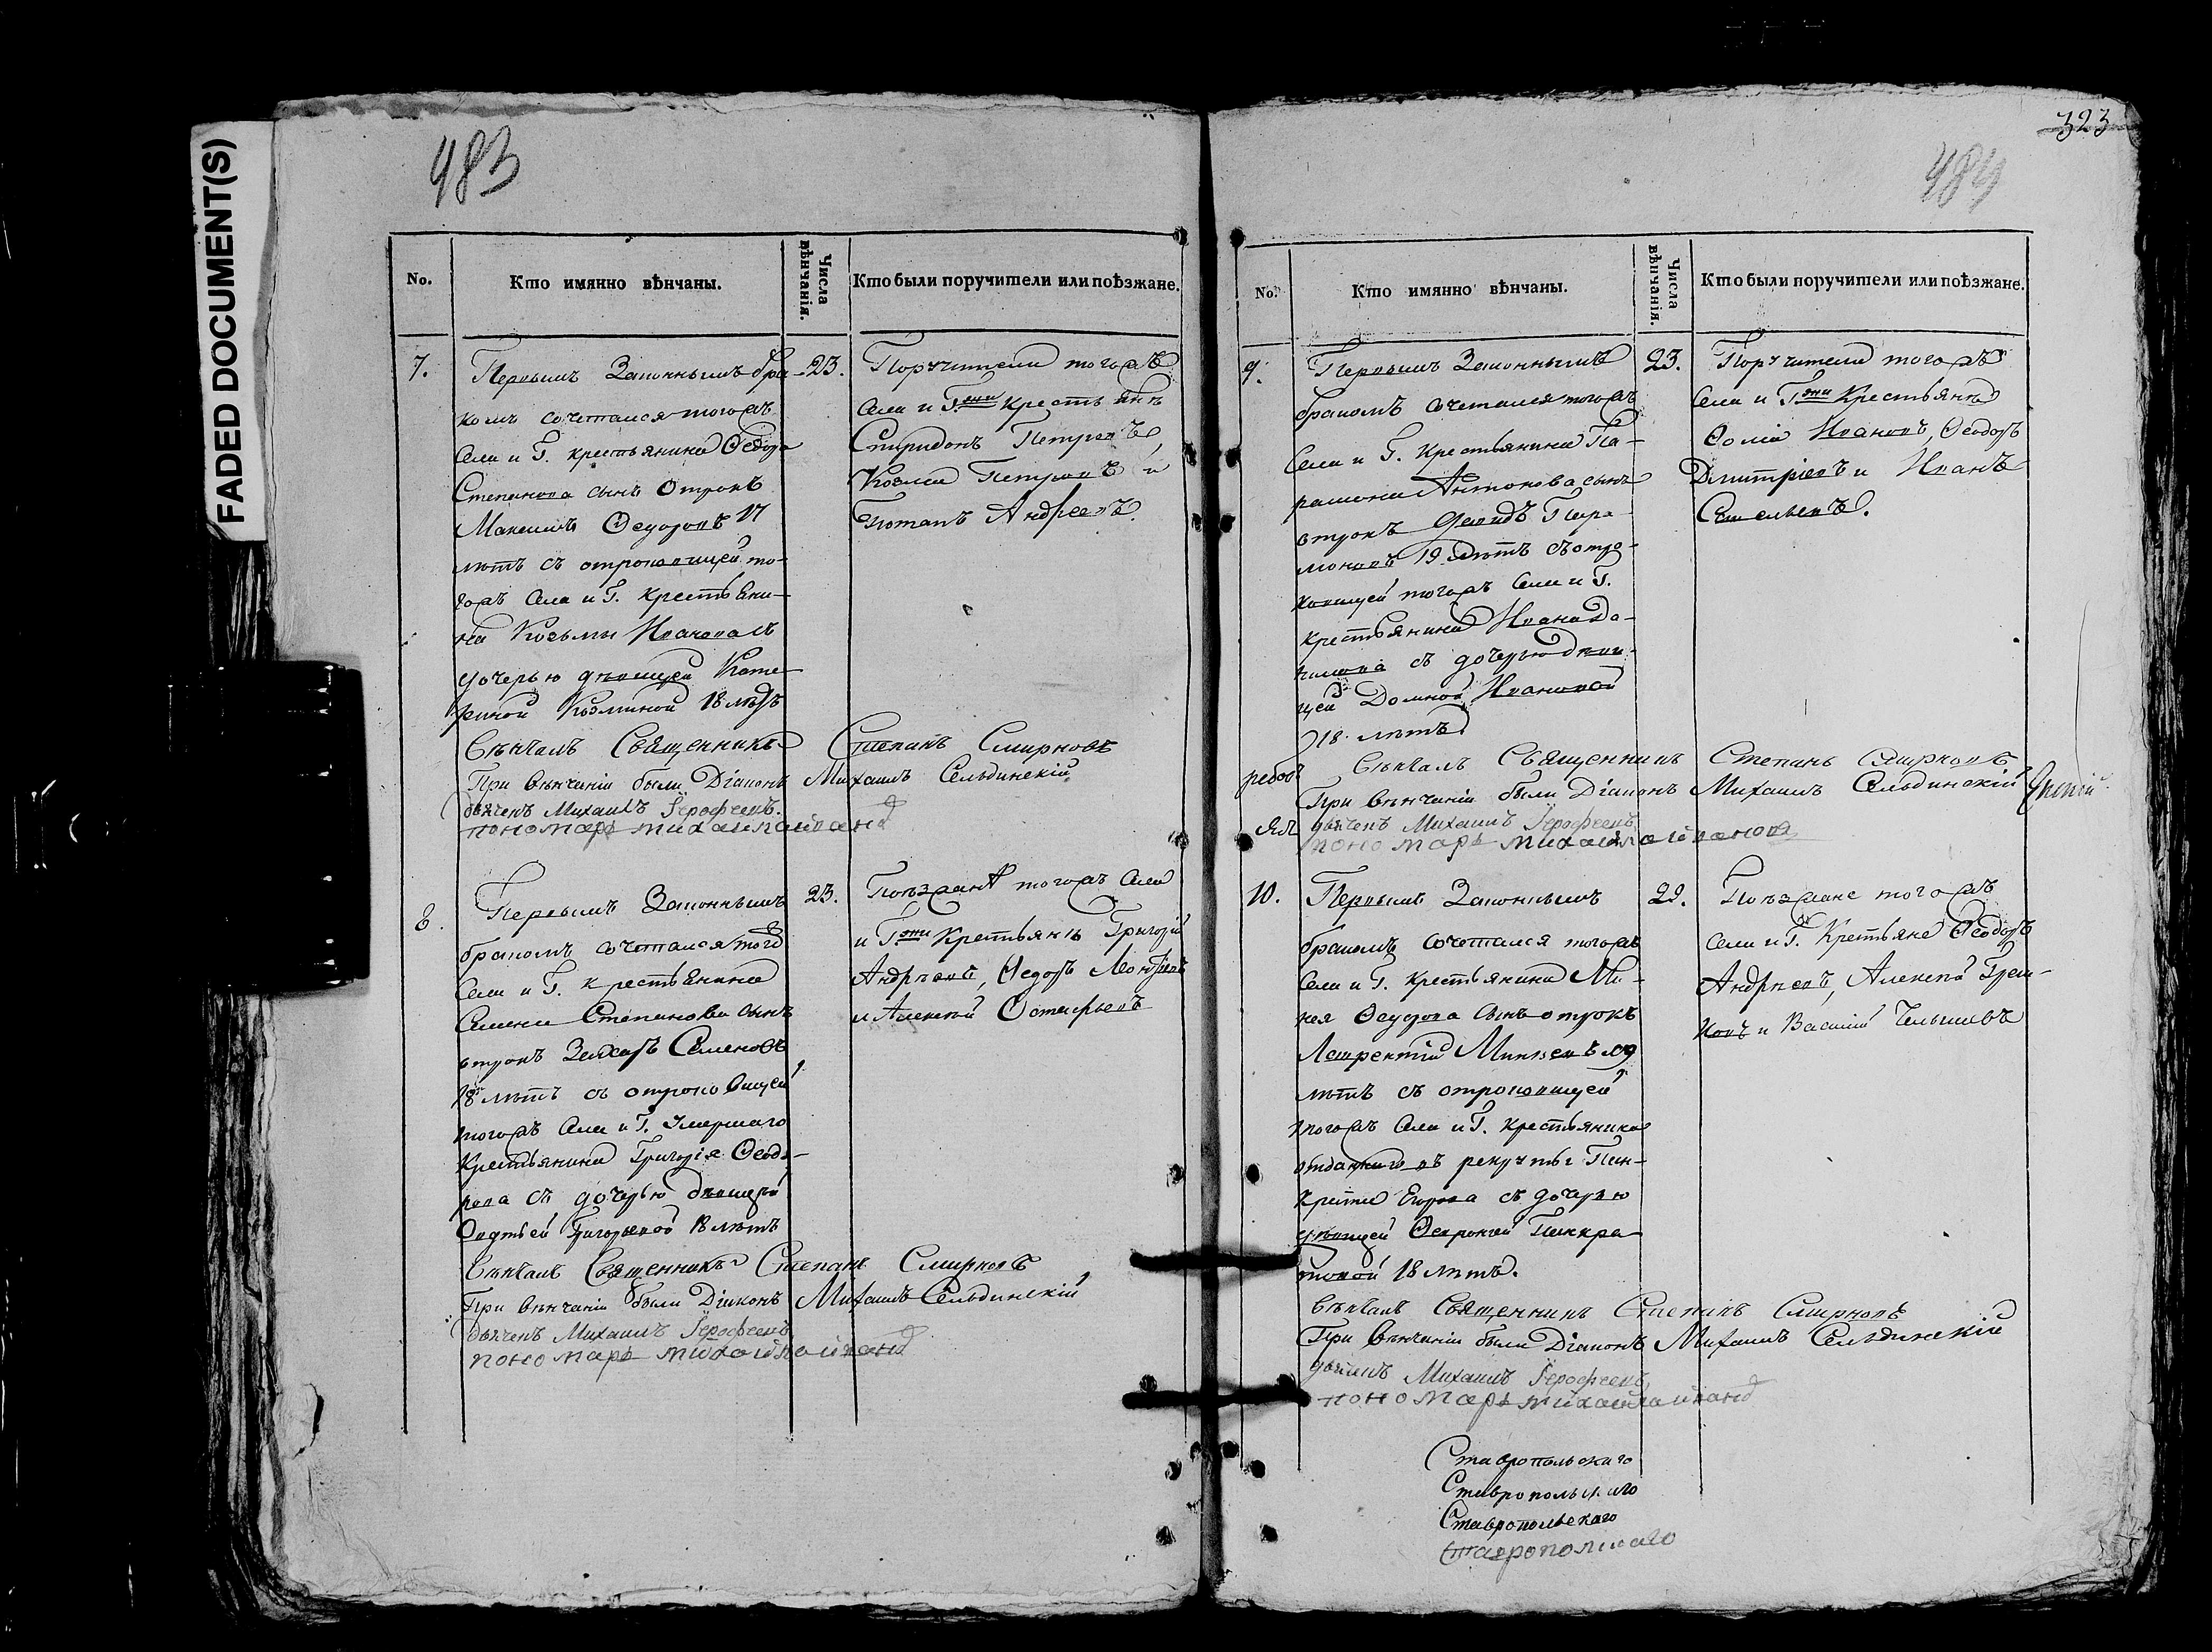 FADED DOCUMENT(S)
483
No.
Кто имянно вѣнчаны.
Числа вѣнчанія.
Кто были поручители или поѣзжане.
7.
Первымъ Законнымъ бра-
комъ сочетался тогожъ
Села и Г. крестьянина Ѳедора
Степанова сынъ Отрокъ
Максимъ Ѳедоровъ 17
лѣтъ съ отроковицей то-
гожъ Села и Г. Крестьяни-
на Козьмы Иванова съ
дочерью дѣвицей Кате-
риной Козминой 18 лѣтъ
23.
Поручители тогожъ
Села и Г. Крестьянѣ
Спиридонъ Петровъ,
Козма Петровъ и
Потапъ Андреевъ.
Вѣнчалъ Священникъ Степанъ Смирновъ
При вѣнчаніи были Діаконъ Михаилъ Сельдинскій
дьячекъ Михаилъ Ерофеевъ.
пономарь михайла иванов
8.
Первымъ Законнымъ
бракомъ сочетался того
Села и Г. крестьянина
Семена Степанова сынъ
отрокъ Захаръ Семеновъ
18 лѣтъ съ отроковицей
тогожъ Села и Г. умершаго
Крестьянина Григорія Ѳеодо-
рова съ дочерью дѣвицей
Григорьевой 18 лѣтъ
23.
Поѣзжанѣ тогожъ Села
и Г. Крестьянѣ Григорій
Андреевъ, Ѳедоръ Леонтіевъ
и Алексѣй Остафьевъ
Вѣнчалъ Священникъ Степанъ Смирновъ
При вѣнчаніи были Діаконъ Михаилъ Сельдинскій
дьячекъ Михаилъ Ерофеевъ
пономарь михайла иванов
323
484
No.
Кто имянно вѣнчаны.
Числа вѣнчанія.
Кто были поручители или поѣзжане.
9.
Первымъ Законнымъ
бракомъ сочетался тогожъ
Села и Г. Крестьянина Па-
рамона Антонова сынъ
отрокъ Давидъ Пара-
моновъ 19 лѣтъ съ отро-
ковицей тогожъ Села и Г.
крестьянина Ивана До-
съ дочерью дѣви-
цей Домной Ивановой
18. лѣтъ.
23.
Поручители тогожъ
Села и Г. Крестьянѣ
Ѳома Ивановъ, Ѳеодоръ
Дмитріевъ и Иванъ
Емельевъ.
Вѣнчалъ Священникъ Степанъ Смирновъ
При вѣнчаніи были Діаконъ Михаилъ Сельдинскій
дьячекъ Михаилъ Ерофеевъ
пономарь михайла иванов
10.
Первымъ Законнымъ
бракомъ сочетался тогожъ
Села и Г. Крестьянина Ми-
нея Ѳедорова Сынъ отрокъ
Лаврентій Минѣевъ 19
лѣтъ съ отроковицей
тогожъ Села и Г. крестьянина
отданнаго въ рекруты Пан-
крата Егорова съ дочерью
дѣвицей Панкра-
товой 18 лѣтъ.
29.
Поѣзжане тогожъ
Села и Г. Крестьяне Ѳеодоръ
Андреевъ, Алексѣй
и Василій
Вѣнчалъ Священникъ Степанъ Смирновъ
При Вѣнчаніи были Діаконъ Михаилъ Сельдинскій
дьячекъ Михаилъ Ерофеевъ
пономарь михайла иванов
Ставропольскаго
Ставропольскаго
Ставропольскаго